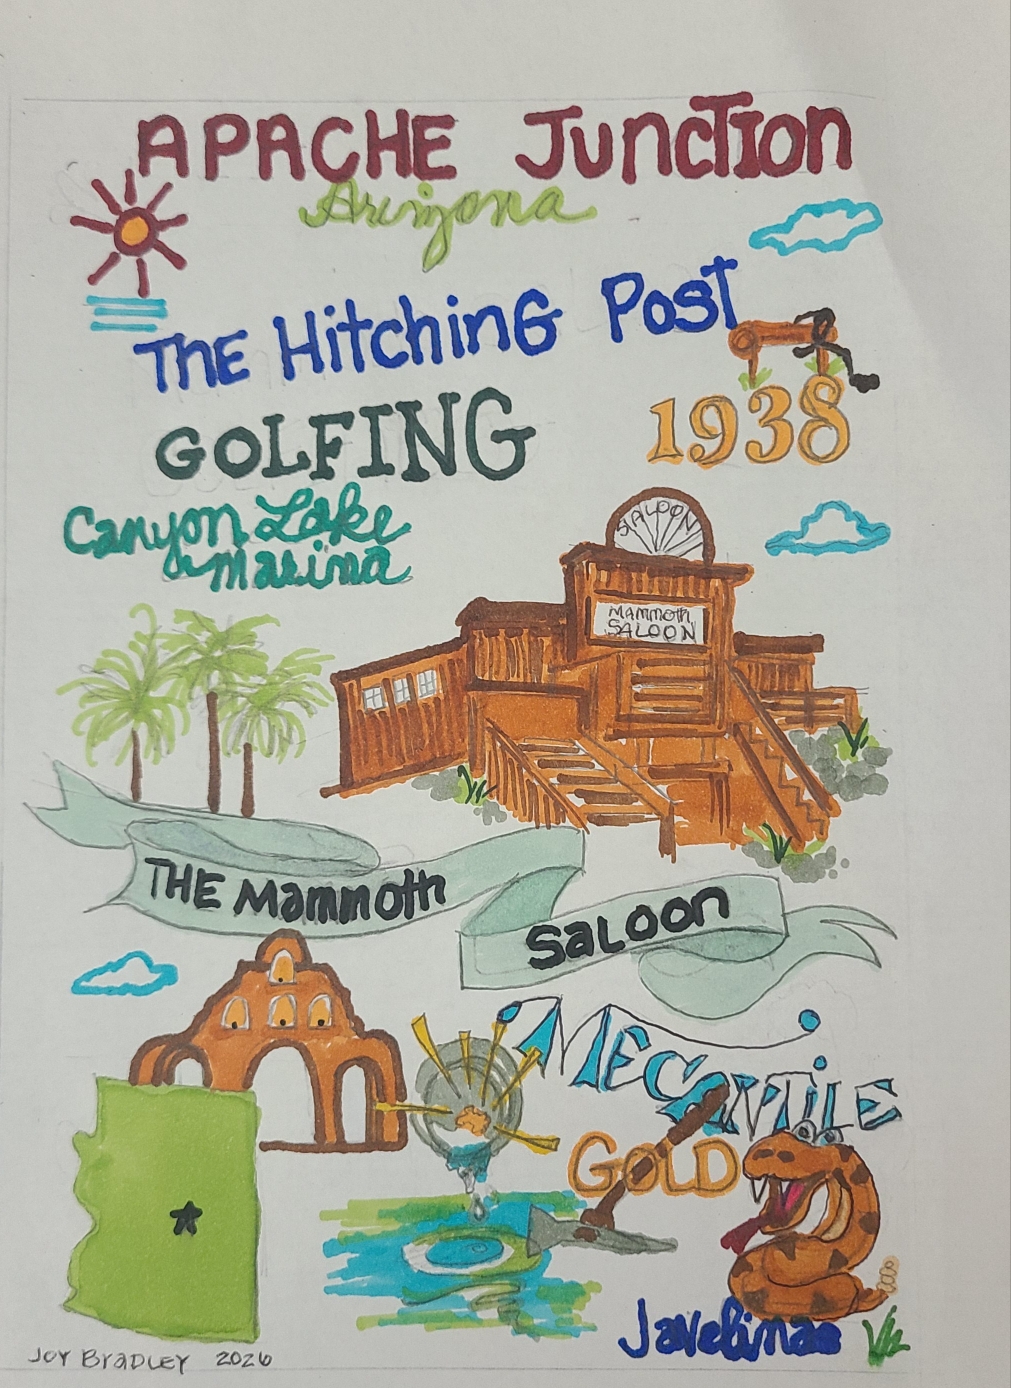 APACHE JUNCTION
Arizona
THE HitchinG Post
GOLFING
1938
Canyon Lake
Marina
SALOON
MAMMOTH
SALOON
THE Mammoth
SALOON
MECANTILE
GOLD
Javelinas
JOY BRADLEY 2026